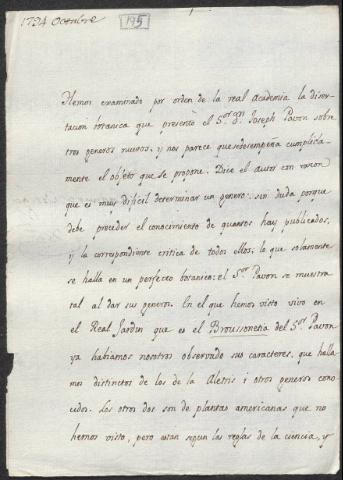 1794 Octubre
195
Hemos examinado por orden de la real Academia la diser-
tacion botanica que presentó el S.or D.n Joseph Pavon sobre
tres generos nuevos, y nos parece que desempeña cumplida-
mente el objeto que se propone. Dice el autor con razon
que es muy dificil determinar un genero: sin duda porque
debe preceder el conocimiento de quantos hay publicados,
y la correspondiente critica de todos ellos; lo que solamente
se halla en un perfecto botanico: el S.or Pavon se muestra
tal al dar sus generos. En el que hemos visto vivo en
el Real Jardin que es el Broussonetia del S.or Pavon
ya habiamos nosotros observado sus caracteres, que halla-
mos distinctos de los de la Aletris i otros generos cono-
cidos. Los otros dos son de plantas americanas que no
hemos visto, pero estan segun las reglas de la ciencia, y